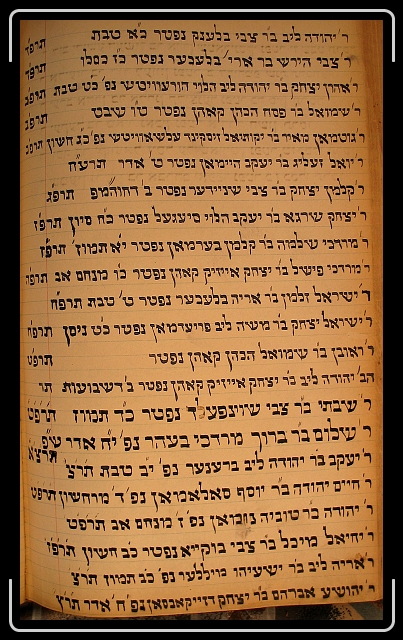 ר' יהודה ליב בר צבי בלענק נפטר כא טבת תרפד
ר' צבי הירש בר ארי' בלעכער נפטר כז כסלו תרפד
ר' אהרן יצחק בר יהודה ליב הלוי הורעוויטש נפ' כט טבת תרפב
ר' שמואל בר פסח הכהן קאהן נפטר טו שבט תרפב
ר' גוטמאן מאיר בר יקותיאל זיסקינד נפ' כג חשון תרפב
ר' יואל זעליג בר יעקב היימאן נפטר ט' אדר תרעח
ר' קלמן יצחק בר צבי שניידער נפטר ב דחוהמפ תרפג
ר' יצחק שרגא בר יעקב הלוי סיגעל נפטר כח סיון תרפז
ר' מרדכי שלמה בר קלמן בערמאן נפטר יא תמוז תרפז
ר' מרדכי פישל בר יצחק אייזיק קאהן נפטר כו מנחם אב תרפה
ר' ישראל זלמן בר אריה בלעכער נפטר ט' טבת תרפח
ר' ישראל יצחק בר משה ליב פרידמאן נפטר כט ניסן תרפח
ר' ראובן בר שמואל הכהן קאהן נפטר תרפט
הב' יהודה ליב בר יצחק אייזיק קאהן נפטר ב דשבועות תר
ר' שבתי בר צבי שוינפעלד נפטר כד תמוז תרפט
ר' שלום בר ברוך מרדכי בעהר נפ' יח אדר
ר' יעקב בר יהודה ליב ברענער נפ' יב טבת תרצ תרצא
ר' חיים יהודה בר יוסף סאלאמאן נפ' ד' מרחשון תרפט
ר' יהודה בר טוביה ניומאן נפ' ז' מנחם אב תרפט
ר' יחיאל מיכל בר צבי בוקיא נפטר כב חשון תרפז
ר' אריה ליב בר ישעיהו מיללער נפ' כב תמוז תרצ
ר' יהושיע אברהם בר יצחק נפ' ח' אדר תרץ